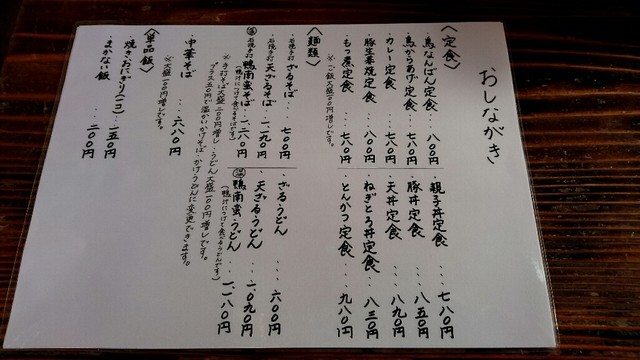 おしながき
〈定食〉
鳥なんばん定食・・八〇〇円
鳥からあげ定食・・七八〇円
カレー定食・・・七八〇円
豚生姜焼定食・・八〇〇円
もつ煮定食・・・七八〇円
※ご飯大盛一〇〇円増しです。
親子丼定食・・・七八〇円
豚丼定食・・・八五〇円
天丼定食・・・八九〇円
ねぎとろ丼定食・・・八三〇円
とんかつ定食・・・九八〇円
〈麺類〉
石挽き手打 ざるそば・・・七〇〇円
石挽き手打 天ざるそば・・一、一九〇円
石挽き手打 鴨南蛮そば・・一、二八〇円
(鴨汁につけて食べるそばです)
ざるうどん・・・六〇〇円
天ざるうどん・・・一、〇九〇円
温 鴨南蛮うどん・・・一、一八〇円
(鴨汁につけて食べるうどんです)
※手打そば大盛二〇〇円増し・うどん大盛一〇〇円増しです。
プラス五〇円で温かいかけそば・かけうどんに変更できます。
中華そば・・・六八〇円
※大盛一〇〇円増しです。
〈単品飯〉
焼きおにぎり(一コ)・・一五〇円
まかない飯・・・二〇〇円